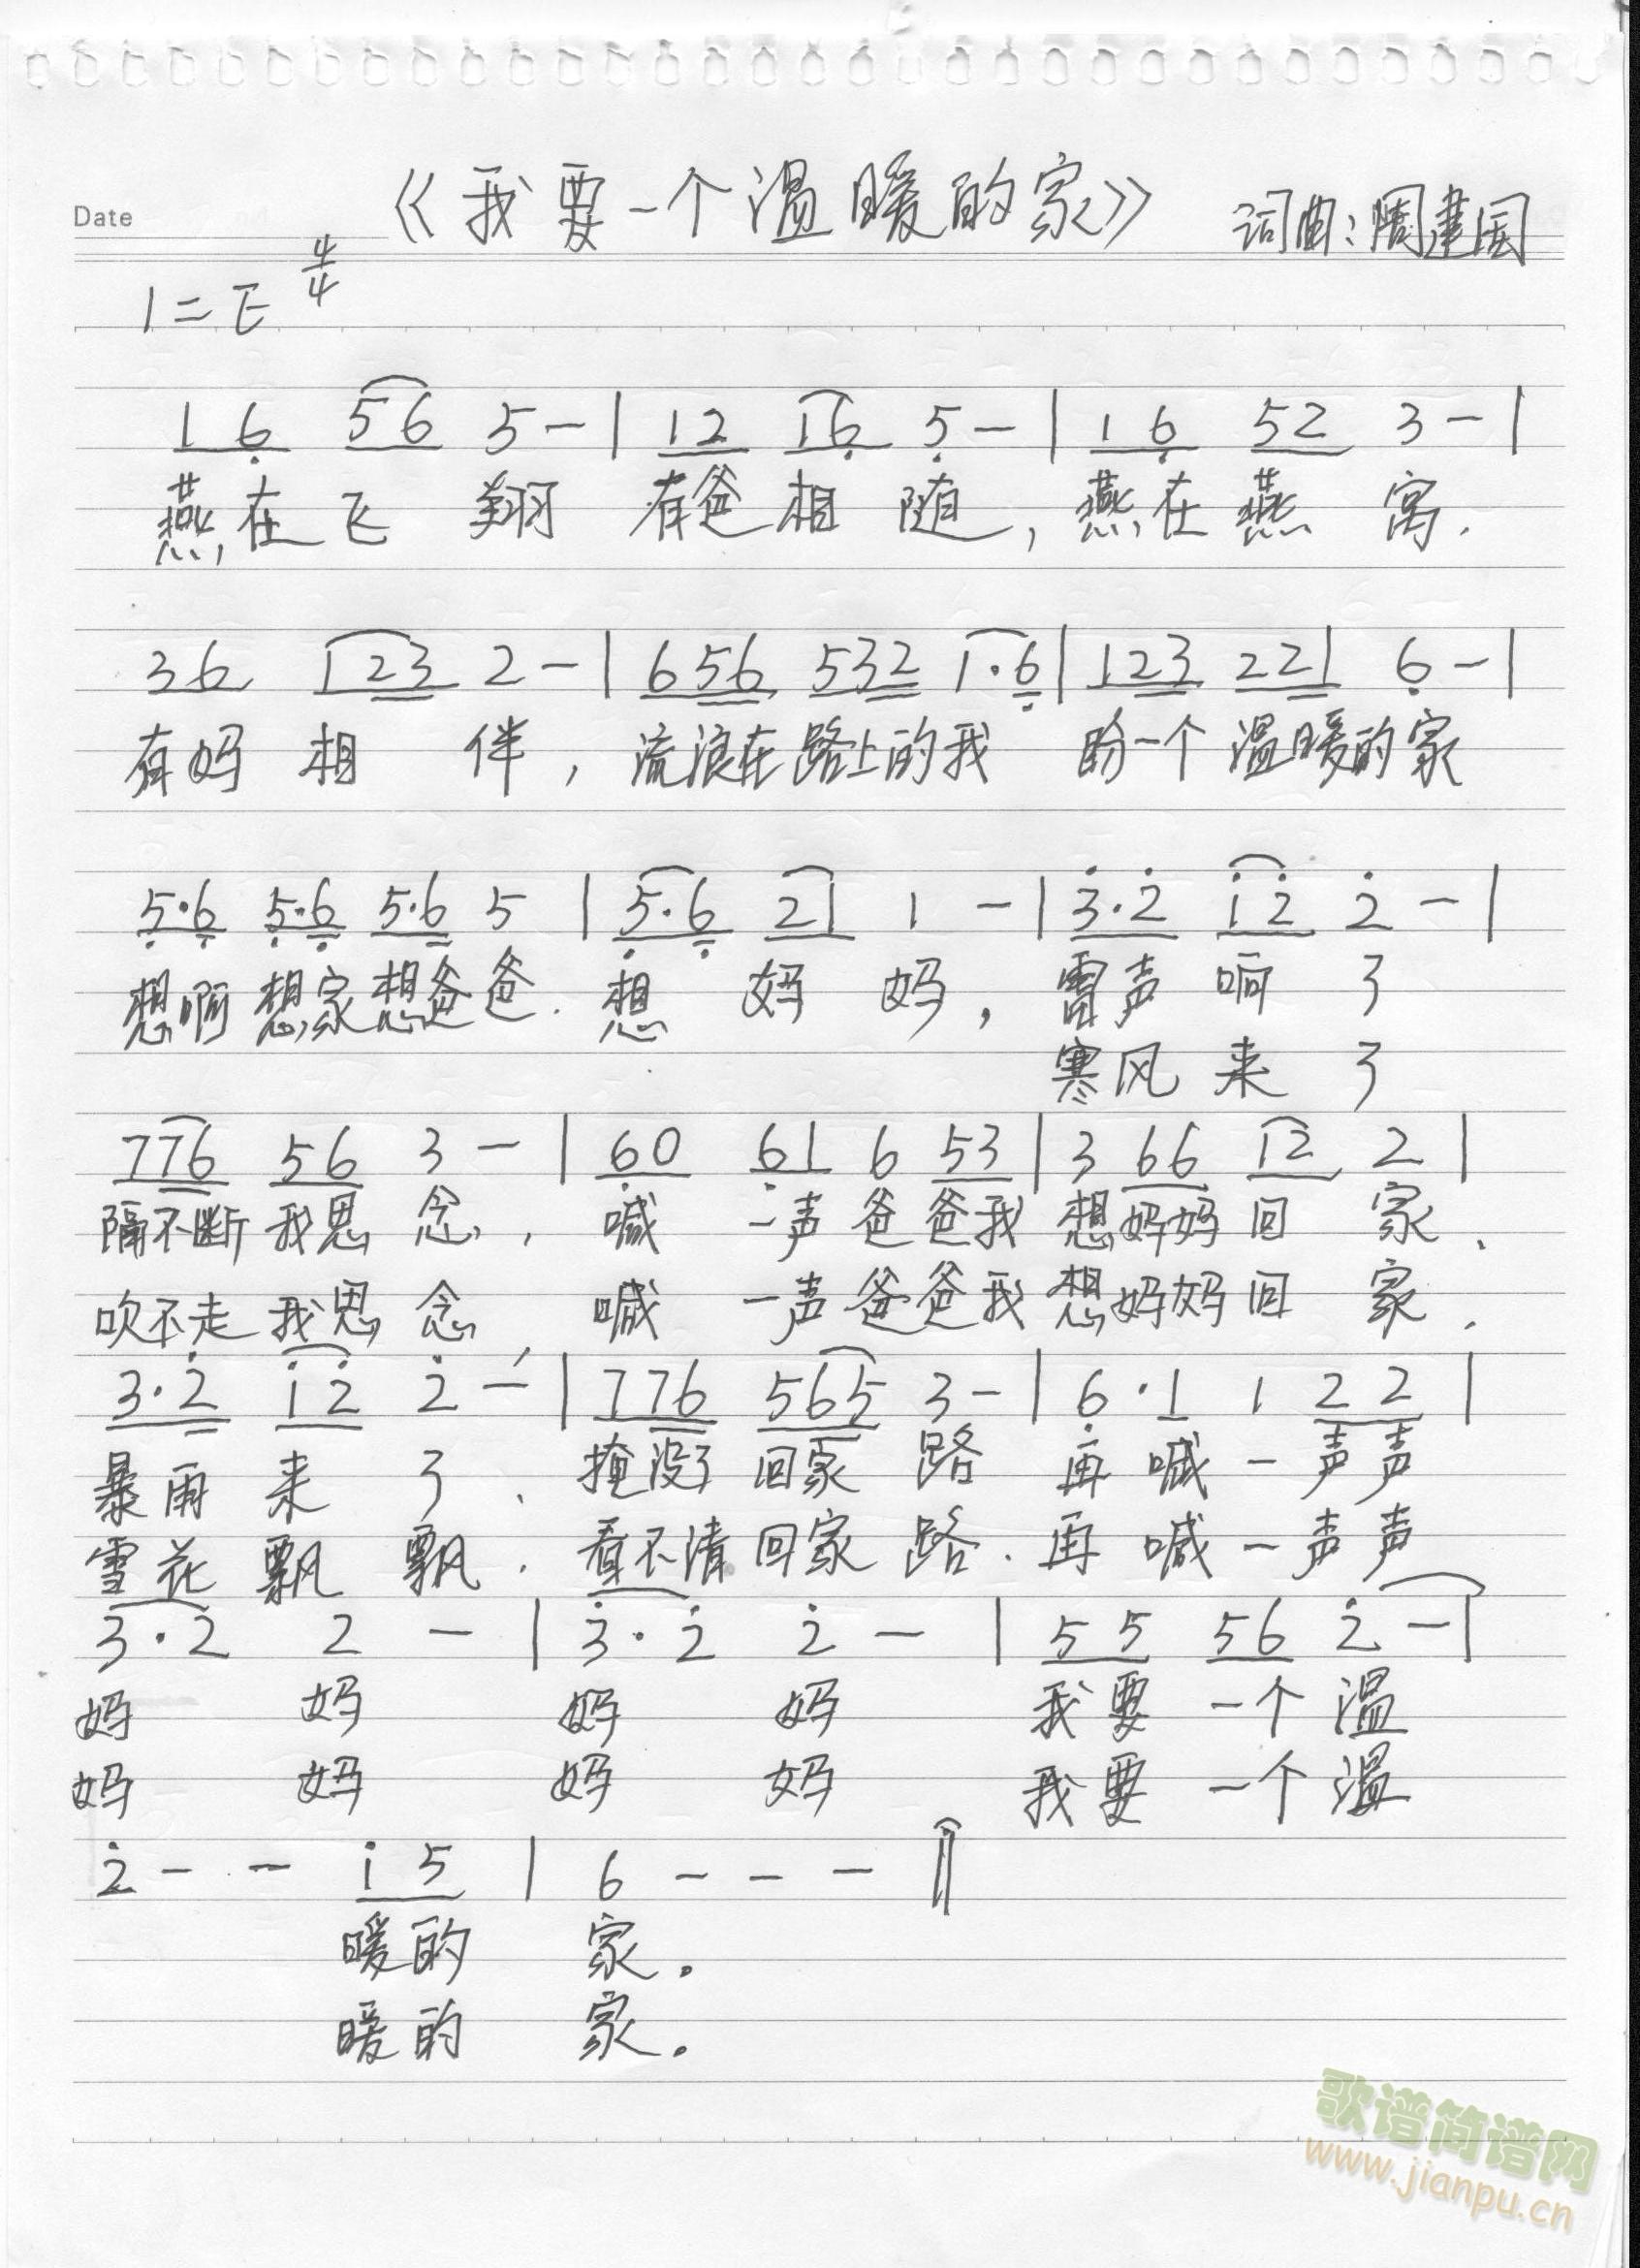 Date
《我要一个温暖的家》 词曲:周建国
1=E 4/4
1 6 5 6 5 - | 1 2 1 6 5 - | 1 6 5 2 3 - |
燕在飞 翔 有爸相 随,燕在燕 窝.
3 6 1 2 3 2 - | 6 5 6 5 3 2 1 · 6 | 1 2 3 2 2 1 6 - |
有妈 相 伴,流浪在路上的我 盼一个温暖的家
5·6 5·6 5·6 5 | 5·6 2 1 1 - | 3·2 1 2 2 - |
想啊 想家想爸爸.想 妈 妈,雷声 响 了
寒风 来 了
7 7 6 5 6 3 - | 6 0 6 1 6 5 3 | 3 6 6 1 2 2 |
隔不断 我思 念,喊 一声 爸 爸我 想妈妈回 家、
吹不走 我思 念,喊 一声 爸爸我 想妈妈回 家.
3·2 1 2 2 - | 7 7 6 5 6 5 3 - | 6·1 1 2 2 |
暴雨 来 了、掩没了 回家 路 再 喊 一 声声
雪花 飘 飘.看不清 回家 路.再 喊 一 声声
3·2 2 - | 3·2 2 - | 5 5 5 6 2 - |
妈 妈 妈 妈 我要 一个 温
妈 妈 妈 妈 我要 一个 温
2 - - 1 5 | 6 - - - ‖
暖的 家。
暖的 家。
歌谱简谱网
www.jianpu.cn